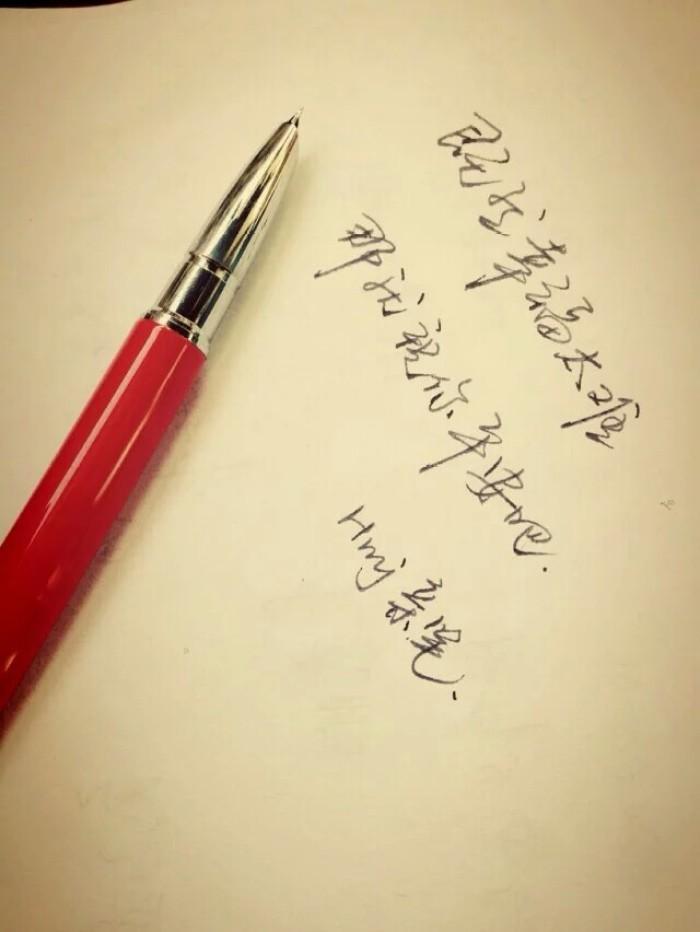 既然幸福太难
那就祝你平安吧.
Hmj亲笔.